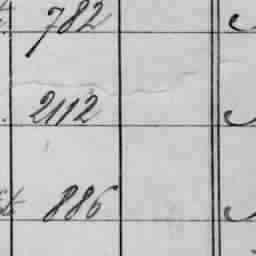 782
2112
886